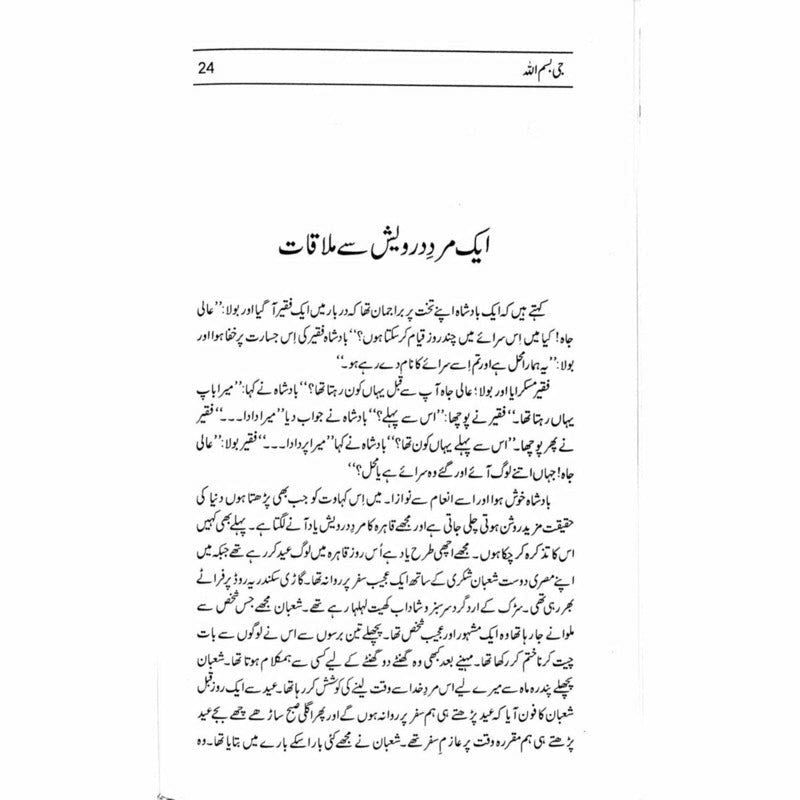 جی بسم اللہ 24
ایک مردِ درویش سے ملاقات
کہتے ہیں کہ ایک بادشاہ اپنے تخت پر براجمان تھا کہ دربار میں ایک فقیر آ گیا اور بولا: ’’عالی
جاہ! کیا میں اِس سرائے میں چند روز قیام کر سکتا ہوں؟‘‘ بادشاہ فقیر کی اِس جسارت پر خفا ہوا اور
بولا: ’’یہ ہمارا محل ہے اور تم اِسے سرائے کا نام دے رہے ہو۔‘‘
فقیر مسکرایا اور بولا؛ عالی جاہ آپ سے قبل یہاں کون رہتا تھا؟‘‘ بادشاہ نے کہا: ’’میرا باپ
یہاں رہتا تھا۔‘‘ فقیر نے پوچھا: ’’اس سے پہلے؟‘‘ بادشاہ نے جواب دیا ’’میرا دادا۔۔۔‘‘ فقیر
نے پھر پوچھا۔ ’’اس سے پہلے یہاں کون تھا؟‘‘ بادشاہ نے کہا ’’میرا پردادا۔۔۔‘‘ فقیر بولا: ’’عالی
جاہ! جہاں اتنے لوگ آئے اور گئے وہ سرائے ہے یا محل؟‘‘
بادشاہ خوش ہوا اور اسے انعام سے نوازا۔ میں اِس کہاوت کو جب بھی پڑھتا ہوں دنیا کی
حقیقت مزید روشن ہوتی چلی جاتی ہے اور مجھے قاہرہ کا مردِ درویش یاد آنے لگتا ہے۔ پہلے بھی کہیں
اس کا تذکرہ کر چکا ہوں۔ مجھے اچھی طرح یاد ہے اُس روز قاہرہ میں لوگ عید کر رہے تھے جبکہ میں
اپنے مصری دوست شعبان شکری کے ساتھ ایک عجیب سفر پر روانہ تھا۔ گاڑی سکندریہ روڈ پر فراٹے
بھر رہی تھی۔ سڑک کے اردگرد سرسبز و شاداب کھیت لہلہا رہے تھے۔ شعبان مجھے جس شخص سے
ملوانے جا رہا تھا وہ ایک مشہور اور عجیب شخص تھا۔ پچھلے تین برسوں سے اس نے لوگوں سے بات
چیت کرنا ختم کر رکھا تھا۔ مہینے بعد کبھی وہ گھنٹے دو گھنٹے کے لیے کسی سے ہمکلام ہوتا تھا۔ شعبان
پچھلے پندرہ ماہ سے میرے لیے اس مردِ خدا سے وقت لینے کی کوشش کر رہا تھا۔ عید سے ایک روز قبل
شعبان کا فون آیا کہ عید پڑھتے ہی ہم سفر پر روانہ ہوں گے اور پھر اگلی صبح ساڑھے چھے بجے عید
پڑھتے ہی ہم مقررہ وقت پر عازمِ سفر تھے۔ شعبان نے مجھے کئی بار اسکے بارے میں بتایا تھا۔ وہ